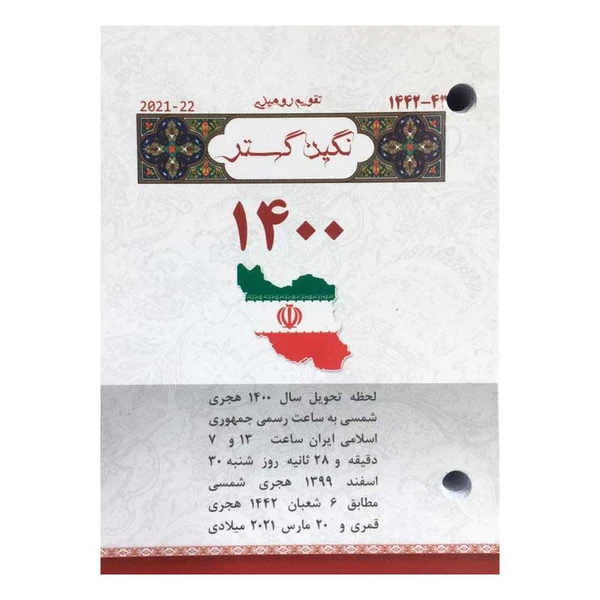 تقویم رومیزی
۱۴۴۲-۴۳
2021-22
نگین گستر
۱۴۰۰
لحظه تحویل سال ۱۴۰۰ هجری
شمسی به ساعت رسمی جمهوری
اسلامی ایران ساعت ۱۳ و ۷
دقیقه و ۲۸ ثانیه روز شنبه ۳۰
اسفند ۱۳۹۹ هجری شمسی
مطابق ۶ شعبان ۱۴۴۲ هجری
قمری و ۲۰ مارس ۲۰۲۱ میلادی